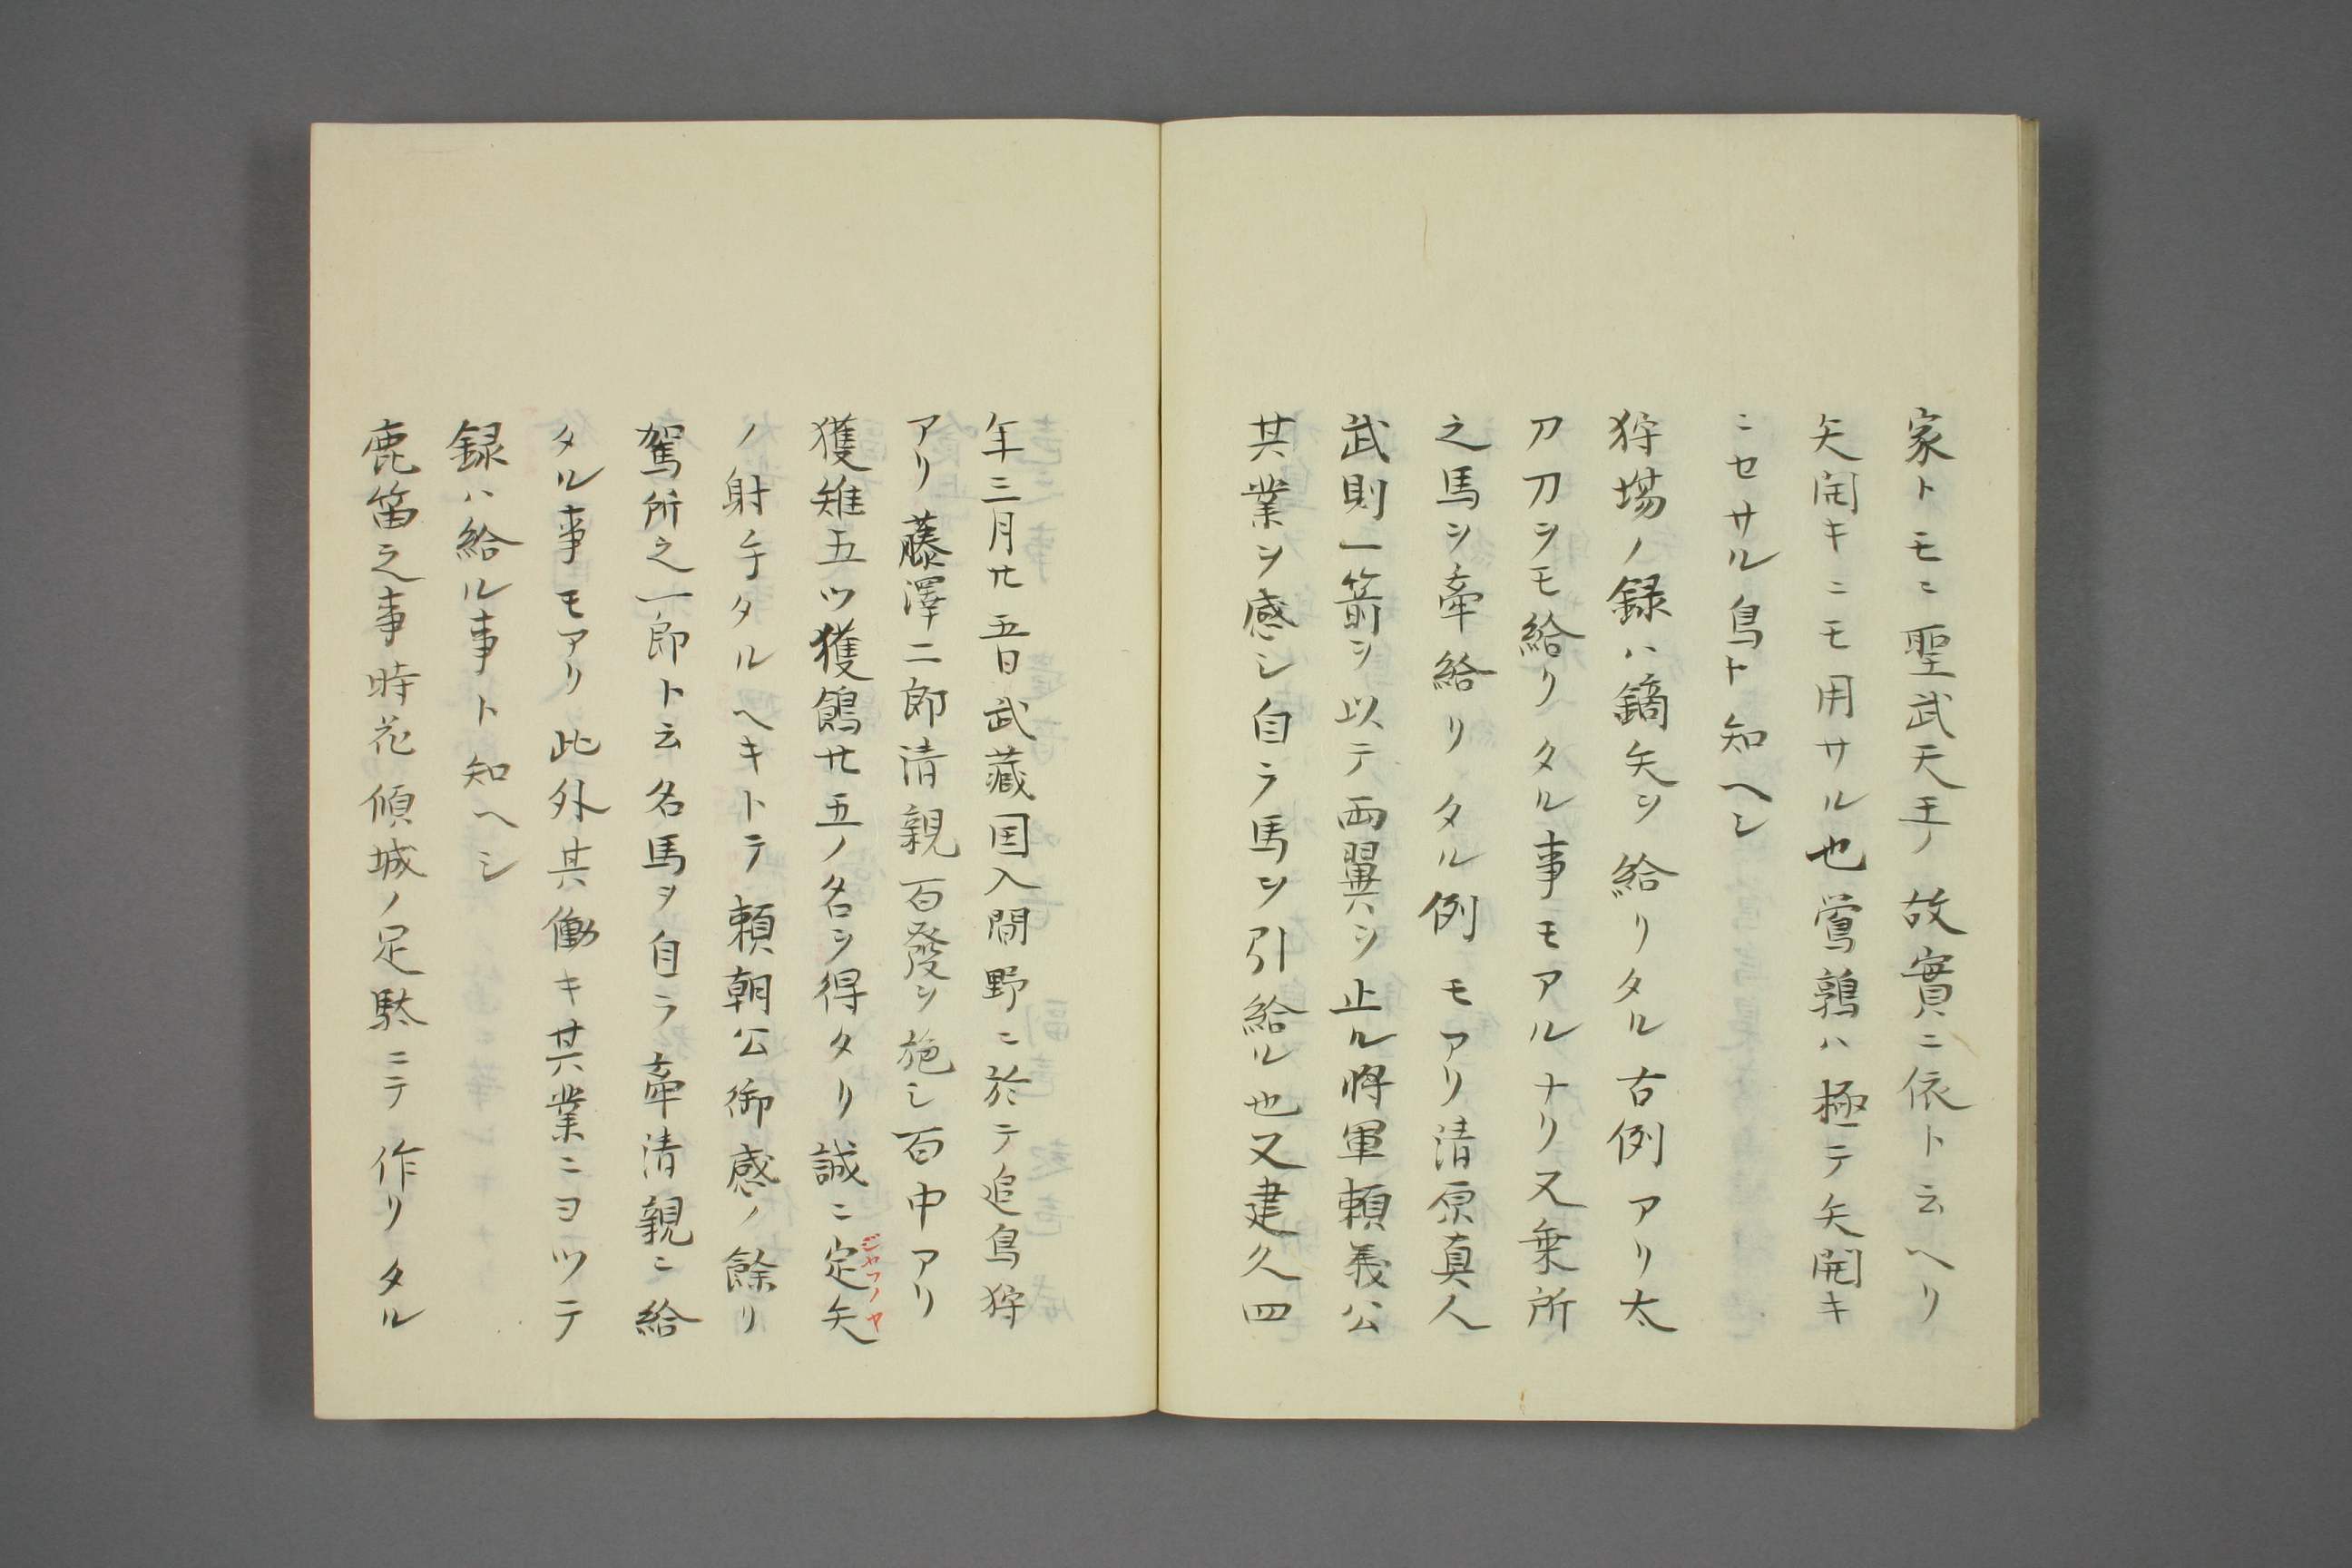 家トモニ聖武天王ノ故實ニ依ト云ヘリ
矢開キニモ用サル也鶯鶉ハ極テ矢開キ
ニセサル鳥ト知ヘシ
狩場ノ録ハ鏑矢ヲ給リタル古例アリ太
刀刀ヲモ給リタル事モアルナリ又乗所
之馬ヲ牽給リタル例モアリ清原真人
武則一箭ヲ以テ両翼ヲ止ル将軍頼義公
其業ヲ感シ自ラ馬ヲ引給ル也又建久四
年三月廿五日武藏国入間野ニ於テ追鳥狩
アリ藤澤二郎清親百發ヲ施シ百中アリ
獲雉五ツ獲鶬廿五ノ名ヲ得タリ誠ニ定矢
ジヤフノヤ
ノ射手タルヘキトテ頼朝公御感ノ餘リ
駕所之一郎ト云名馬ヲ自ラ牽清親ニ給
タル事モアリ此外其働キ其業ニヨツテ
録ハ給ル事ト知ヘシ
鹿笛之事時花傾城ノ足駄ニテ作リタル